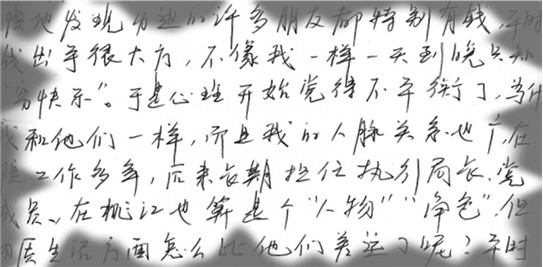 地发现身边的许多朋友都特别有钱,平时
我出手很大方,不像我一样一天到晚只知
“穷快乐”。于是心理开始觉得不平衡了,为什
我和他们一样,而且我的人脉关系也广,在
工作多年,后来长期担任执行局长、党
成员、在桃江也算是个“人物”“角色”,但
质生活方面怎么比他们差远了呢?平时